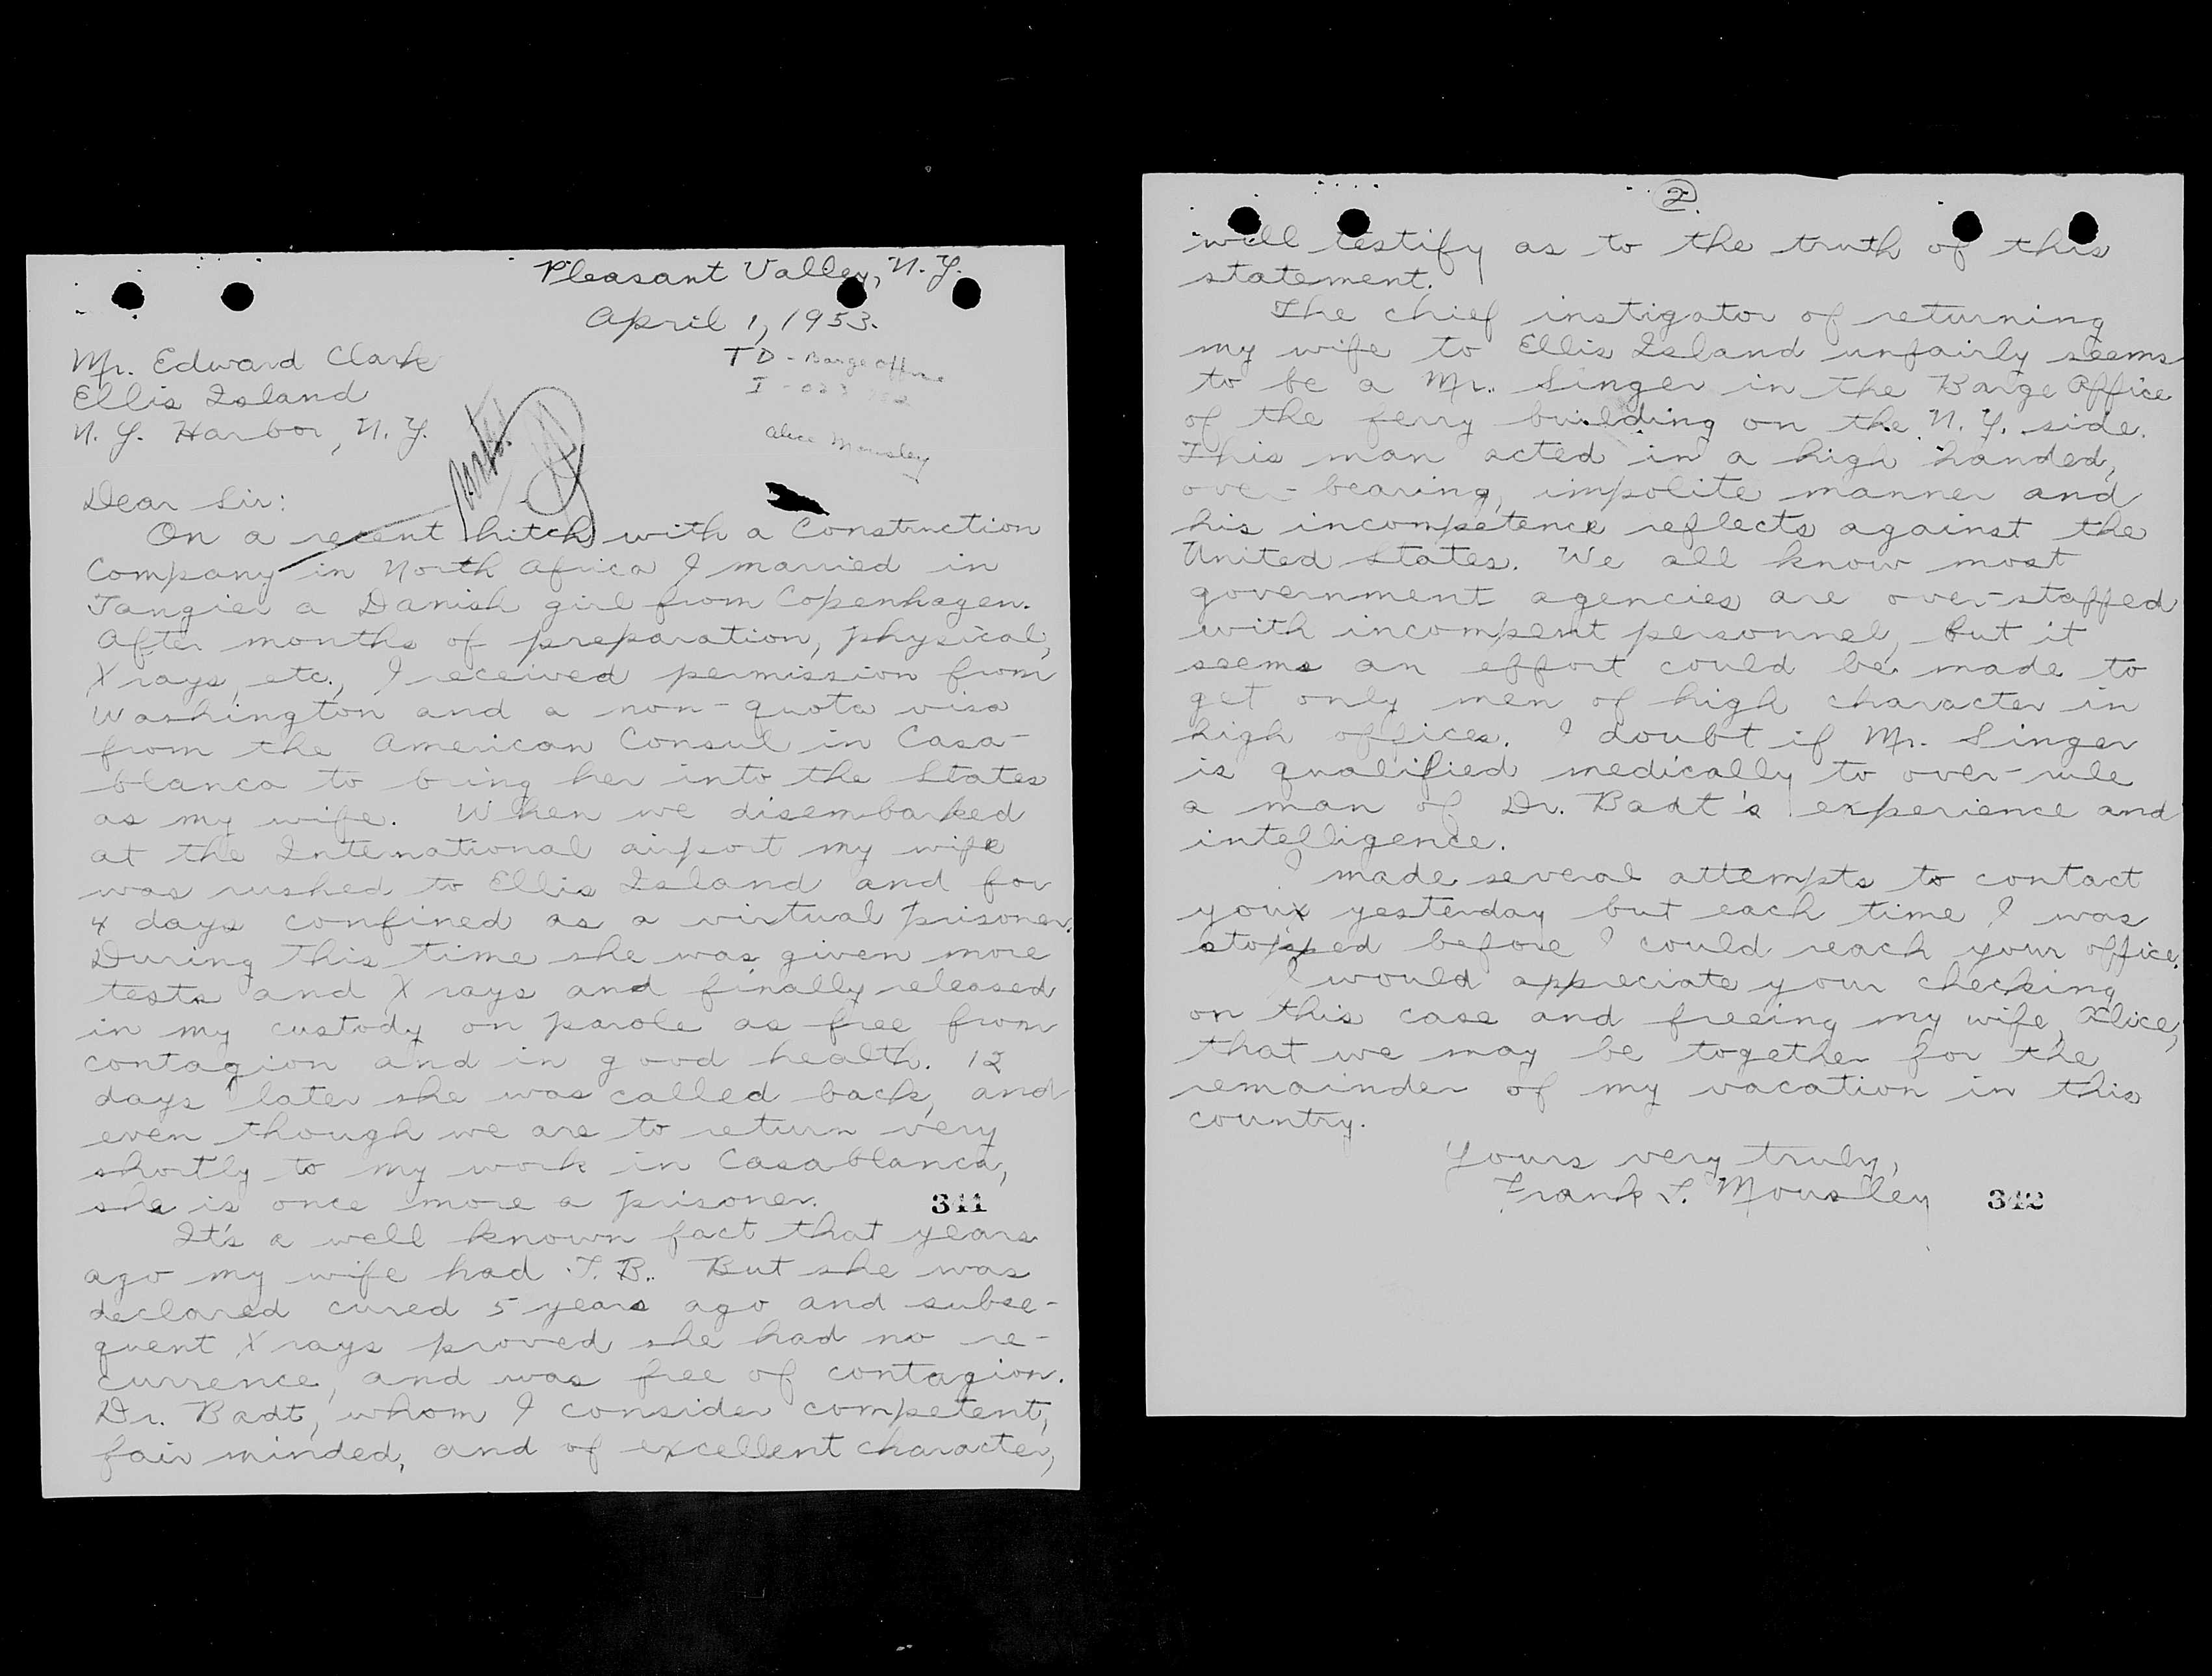 Pleasant Valley, N.Y.
April 1, 1953.
Mr. Edward Clark
Ellis Island
N.Y. Harbor, N.Y.
TD - Barge Office
I - 023
Alice Mousley
Dear Sir:
On a recent hitch with a Construction
Company in North Africa I married in
Tangier a Danish girl from Copenhagen.
After months of preparation, physical,
X rays, etc., I received permission from
Washington and a non-quota visa
from the American Consul in Casa-
blanca to bring her into the States
as my wife. When we disembarked
at the International airport my wife
was rushed to Ellis Island and for
4 days confined as a virtual prisoner.
During this time she was given more
tests and X rays and finally released
in my custody on parole as free from
contagion and in good health. 12
days later she was called back, and
even though we are to return very
shortly to my work in Casablanca,
she is once more a prisoner.
341
It's a well known fact that years
ago my wife had T.B. But she was
declared cured 5 years ago and subse-
quent X rays proved she had no re-
currence, and was free of contagion.
Dr. Badt, whom I consider competent,
fair minded, and of excellent character,
2.
will testify as to the truth of this
statement.
The chief instigator of returning
my wife to Ellis Island unfairly seems
to be a Mr. Singer in the Barge Office
of the ferry building on the N.Y. side.
This man acted in a high handed,
over-bearing, impolite manner and
his incompetence reflects against the
United States. We all know most
government agencies are over-staffed
with incompent personnel, but it
seems an effort could be made to
get only men of high character in
high offices. I doubt if Mr. Singer
is qualified medically to over-rule
a man of Dr. Badt's experience and
intelligence.
I made several attempts to contact
you yesterday but each time I was
stopped before I could reach your office.
I would appreciate your checking
on this case and freeing my wife, Alice,
that we may be together for the
remainder of my vacation in this
country.
Yours very truly,
Frank S. Mousley
342